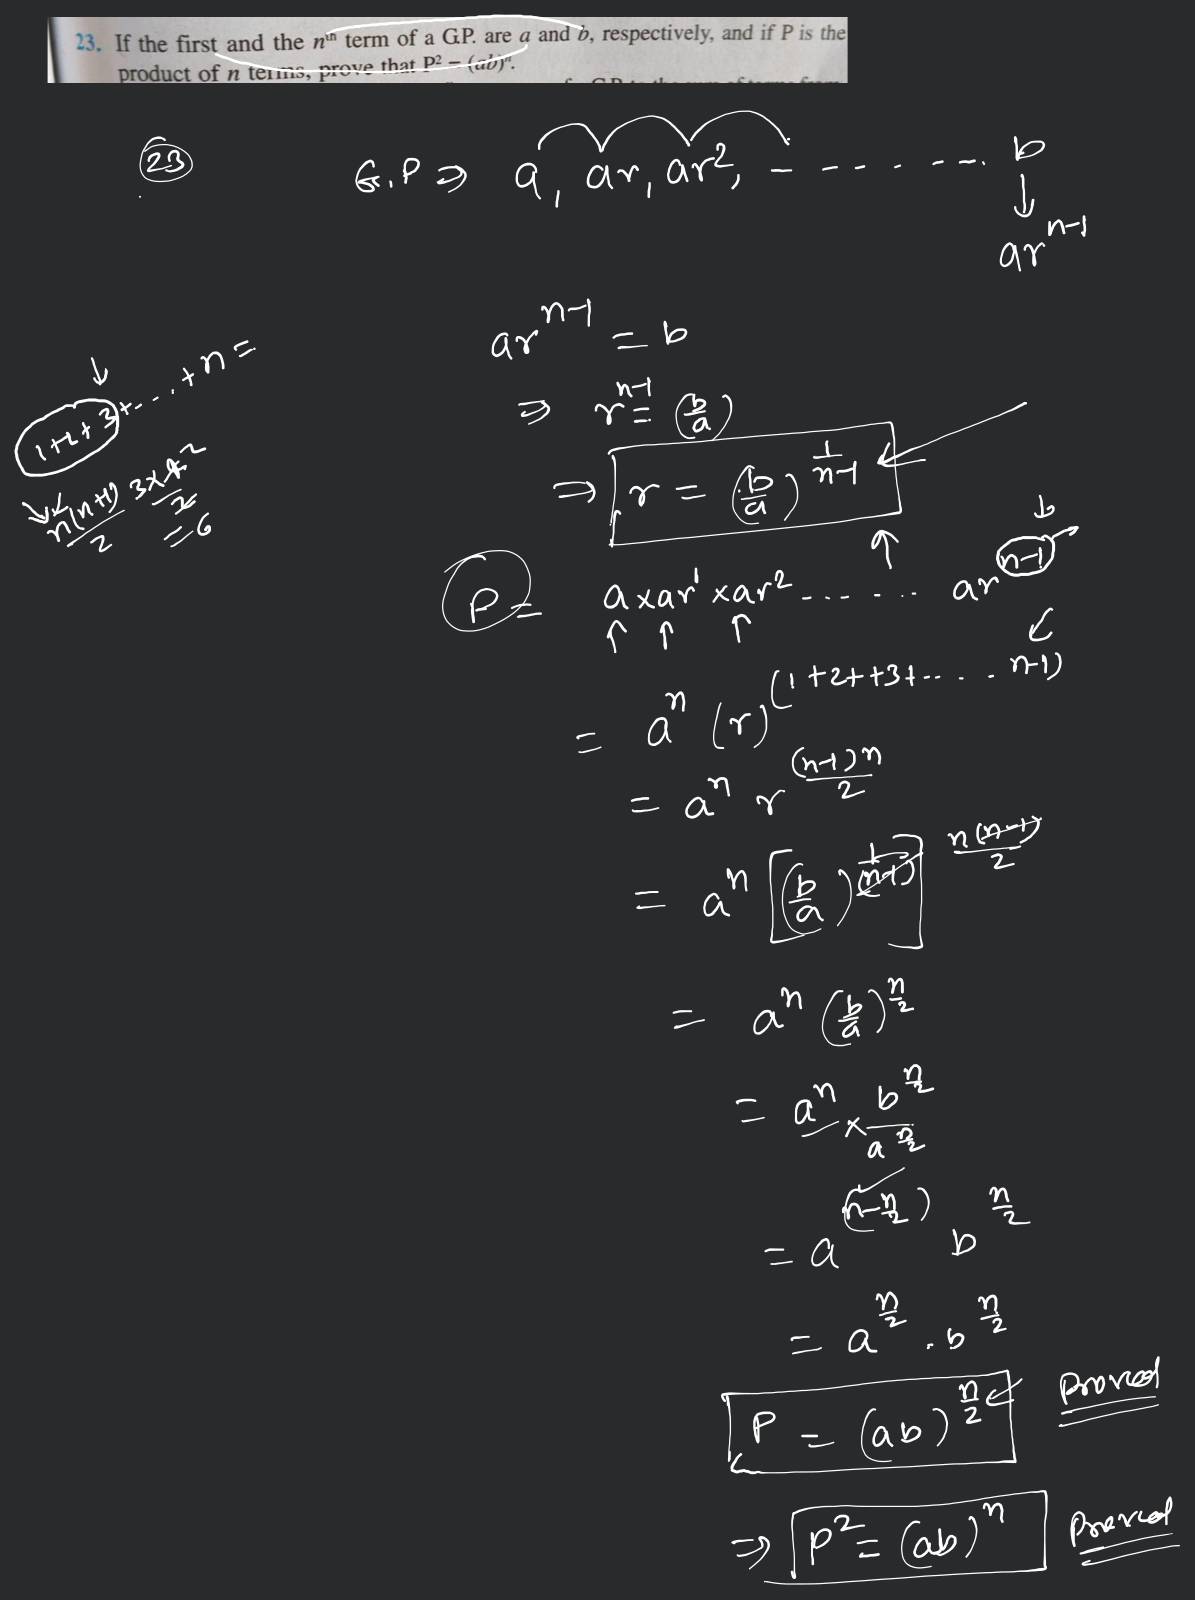 23. If the first and the nth term of a G.P. are a and b, respectively, and if P is the
product of n terms, prove that P² = (ab)ⁿ.
23
G.P ⇒ a, ar, ar², - - - - - - - b
↓
ar^(n-1)
ar^(n-1) = b
⇒ r^(n-1) = (b/a)
⇒ r = (b/a)^(1/(n-1))
1+2+3+....+n =
n(n+1)/2 3×4²/2
= 6
P = a×ar¹×ar² ...... ar^(n-1)
= aⁿ (r)^(1+2++3+..... n-1)
= aⁿ r^((n-1)n/2)
= aⁿ [(b/a)^(1/(n-1))]^(n(n-1)/2)
= aⁿ (b/a)^(n/2)
= aⁿ × b^(n/2)/a^(n/2)
= a^(n-n/2) b^(n/2)
= a^(n/2) . b^(n/2)
P = (ab)^(n/2) Proved
⇒ P² = (ab)ⁿ Proved